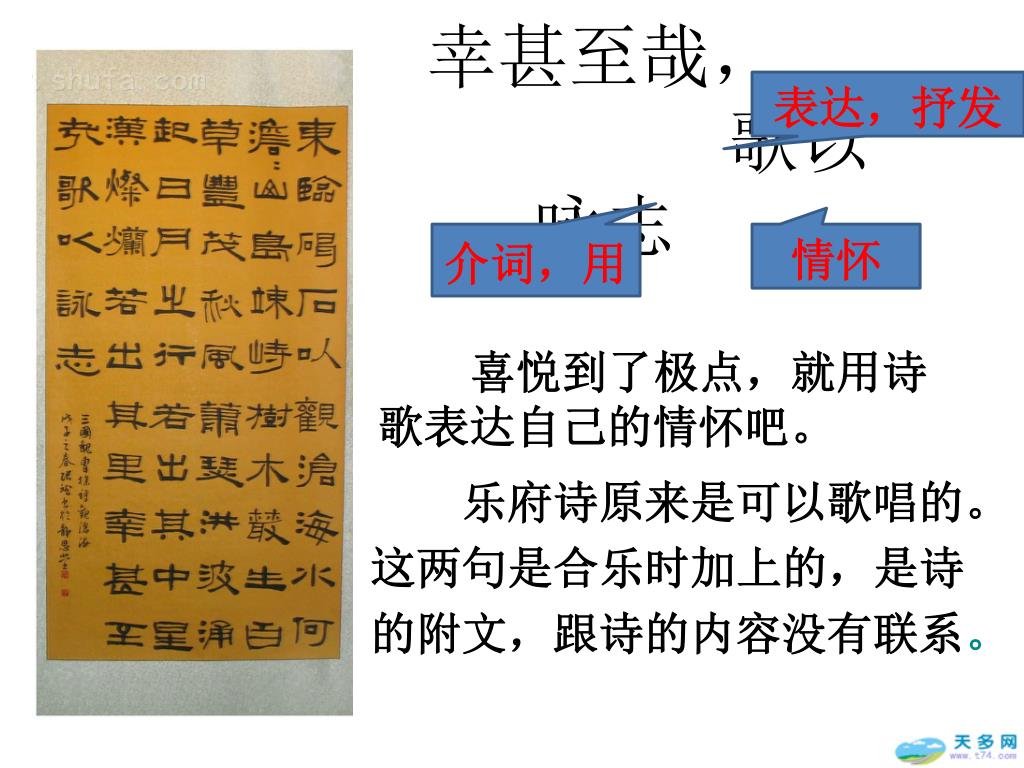 shufa.com
東臨碣石以觀滄海水何
澹〻山島竦峙樹木叢生百
草豐茂秋風蕭瑟洪波涌
起日月之行若出其中星
漢燦爛若出其里幸甚至
哉歌以詠志
三國魏曹操詩觀滄海
戊子之春
幸甚至哉，
表达，抒发
歌以
咏志
介词，用
情怀
喜悦到了极点，就用诗
歌表达自己的情怀吧。
乐府诗原来是可以歌唱的。
这两句是合乐时加上的，是诗
的附文，跟诗的内容没有联系。
天多网
www.t74.com